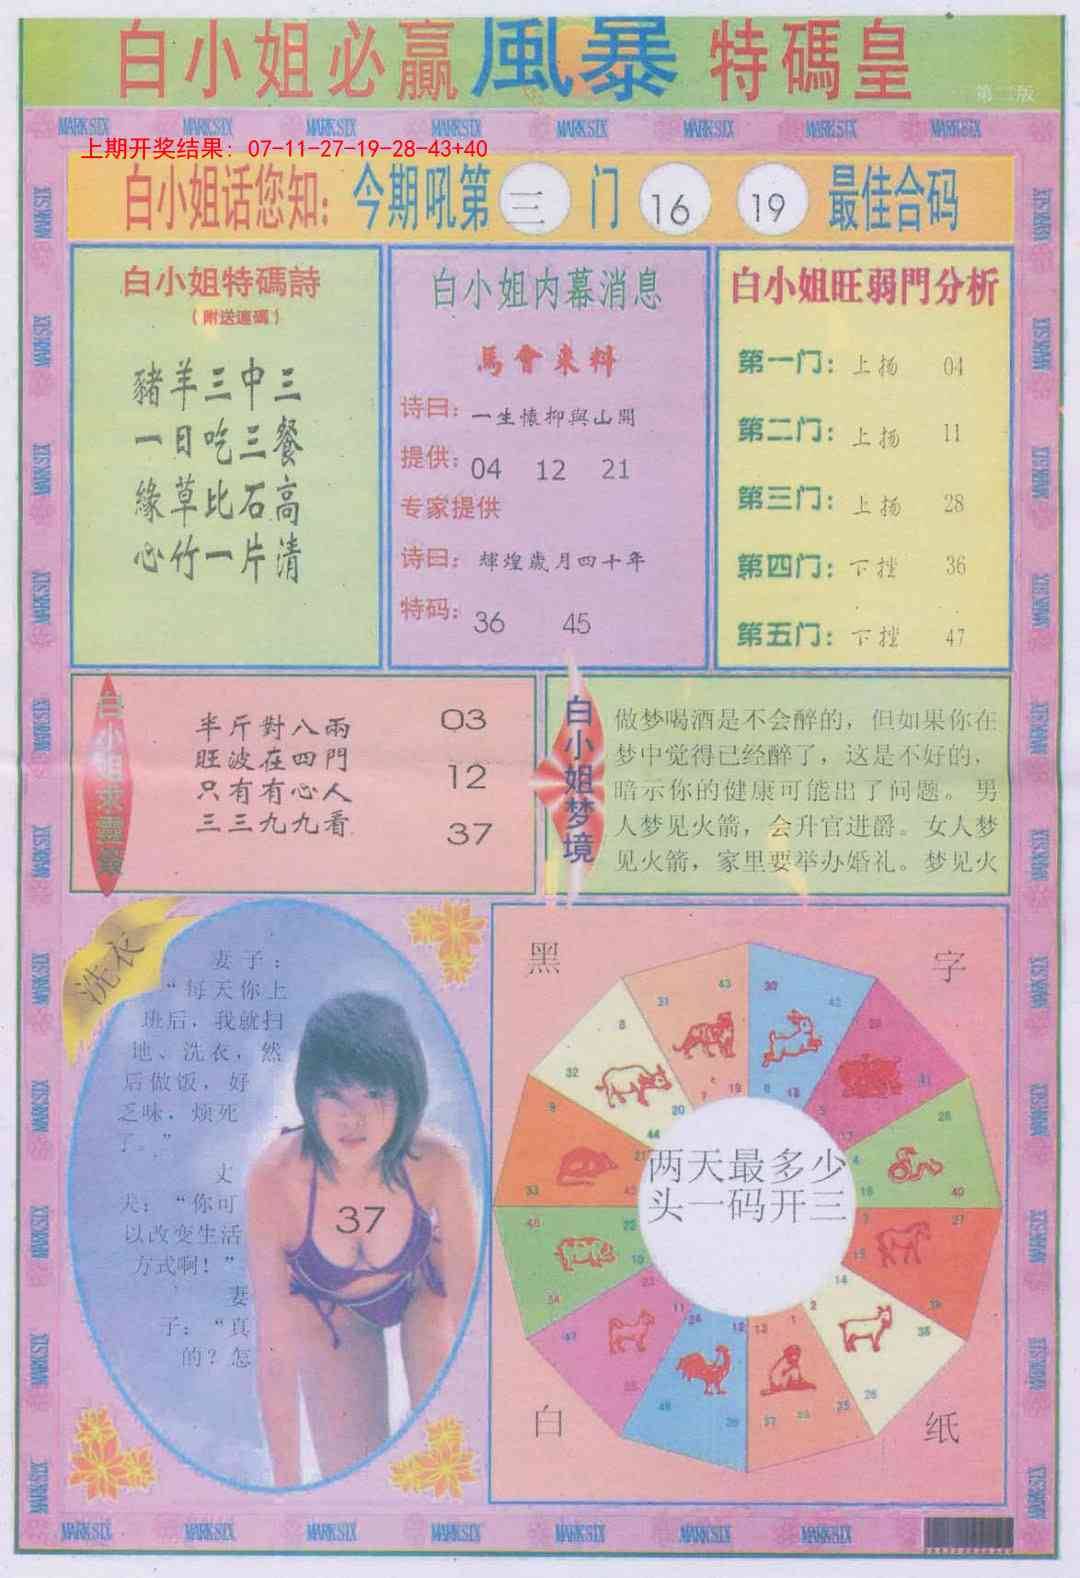 白小姐必贏風暴特碼皇
第二版
MARK SIX MARK SIX MARK SIX MARK SIX MARK SIX MARK SIX MARK SIX MARK SIX
上期开奖结果：07-11-27-19-28-43+40
白小姐话您知：今期吼第三门 16 19 最佳合码
白小姐特碼詩
（附送連碼）
豬羊三中三
一日吃三餐
緣草比石高
心竹一片清
白小姐内幕消息
馬會来料
诗曰：一生懷抑與山開
提供：04 12 21
专家提供
诗曰：輝煌歲月四十年
特码：36 45
白小姐旺弱門分析
第一门：上扬 04
第二门：上扬 11
第三门：上扬 28
第四门：下挫 36
第五门：下挫 47
白小姐求靈籤
半斤對八兩
旺波在四門
只有有心人
三三九九看
03
12
37
白小姐梦境
做梦喝酒是不会醉的，但如果你在
梦中觉得已经醉了，这是不好的，
暗示你的健康可能出了问题。男
人梦见火箭，会升官进爵。女人梦
见火箭，家里要举办婚礼。梦见火
洗衣
妻子：
“每天你上
班后，我就扫
地、洗衣，然
后做饭，好
乏味，烦死
了。”
丈
夫：“你可
以改变生活
方式啊！”
妻
子：“真
的？怎
37
黑
字
白
纸
两天最多少
头一码开三
MARK SIX MARK SIX MARK SIX MARK SIX MARK SIX MARK SIX MARK SIX